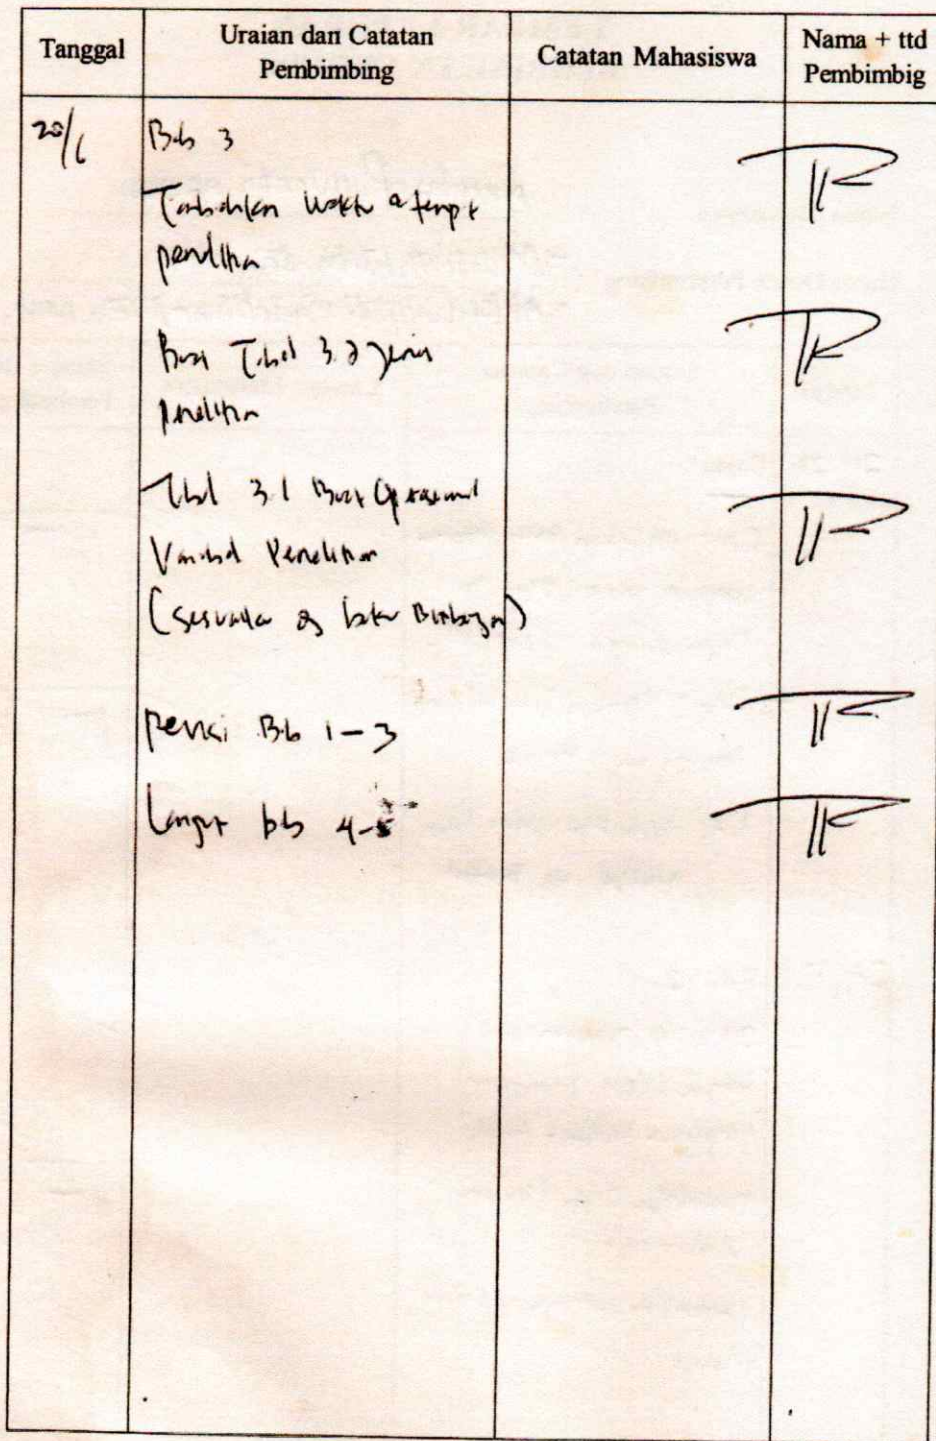 Tanggal
Uraian dan Catatan
Pembimbing
Catatan Mahasiswa
Nama + ttd
Pembimbig
20/6
Bab 3
Tambahkan waktu & tempat
penelitian
Buat Tabel 3.2 jenis
penelitian
Tabel 3.1 Buat Operasional
Variabel Penelitian
(sesuaikan dg buku Bimbingan)
revisi Bab 1-3
Lanjut bab 4-5